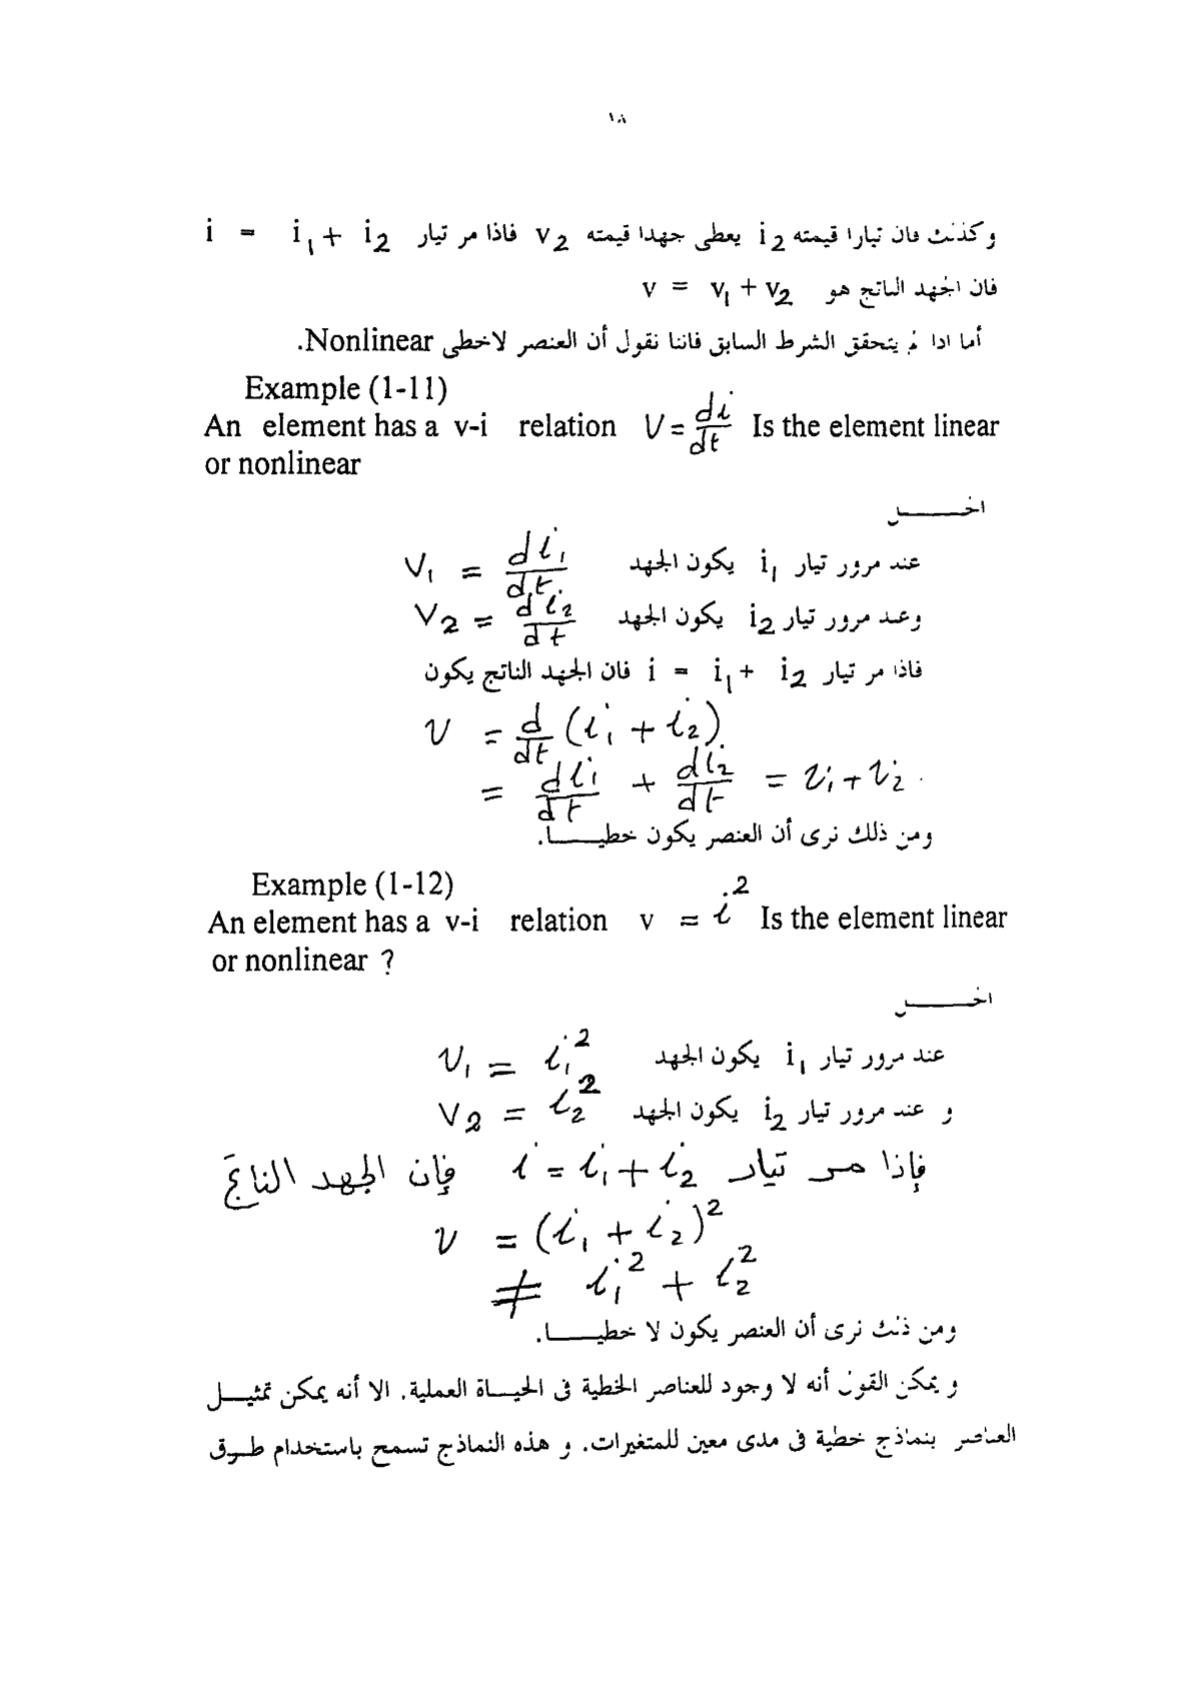 ١٨
وكذلك فان تيارا قيمته i2 يعطى جهدا قيمته v2 فاذا مر تيار i = i1 + i2
فان الجهد الناتج هو v = v1 + v2
أما اذا لم يتحقق الشرط السابق فاننا نقول أن العنصر لاخطى Nonlinear.
Example (1-11)
An element has a v-i relation V = di/dt Is the element linear
or nonlinear
الحـــــل
عند مرور تيار i1 يكون الجهد V1 = di1/dt
وعند مرور تيار i2 يكون الجهد V2 = di2/dt
فاذا مر تيار i = i1 + i2 فان الجهد الناتج يكون
v = d/dt (i1 + i2)
= di1/dt + di2/dt = v1 + v2
ومن ذلك نرى أن العنصر يكون خطيـــــا.
Example (1-12)
An element has a v-i relation v = i² Is the element linear
or nonlinear ?
الحـــــل
عند مرور تيار i1 يكون الجهد v1 = i1²
و عند مرور تيار i2 يكون الجهد V2 = i2²
فإذا مر تيار i = i1 + i2 فإن الجهد الناتج
v = (i1 + i2)²
≠ i1² + i2²
ومن ذلك نرى أن العنصر يكون لا خطيـــــا.
و يمكن القول أنه لا وجود للعناصر الخطية فى الحيـــاة العملية. الا أنه يمكن تمثيـــل
العناصر بنماذج خطية فى مدى معين للمتغيرات. و هذه النماذج تسمح باستخدام طـرق